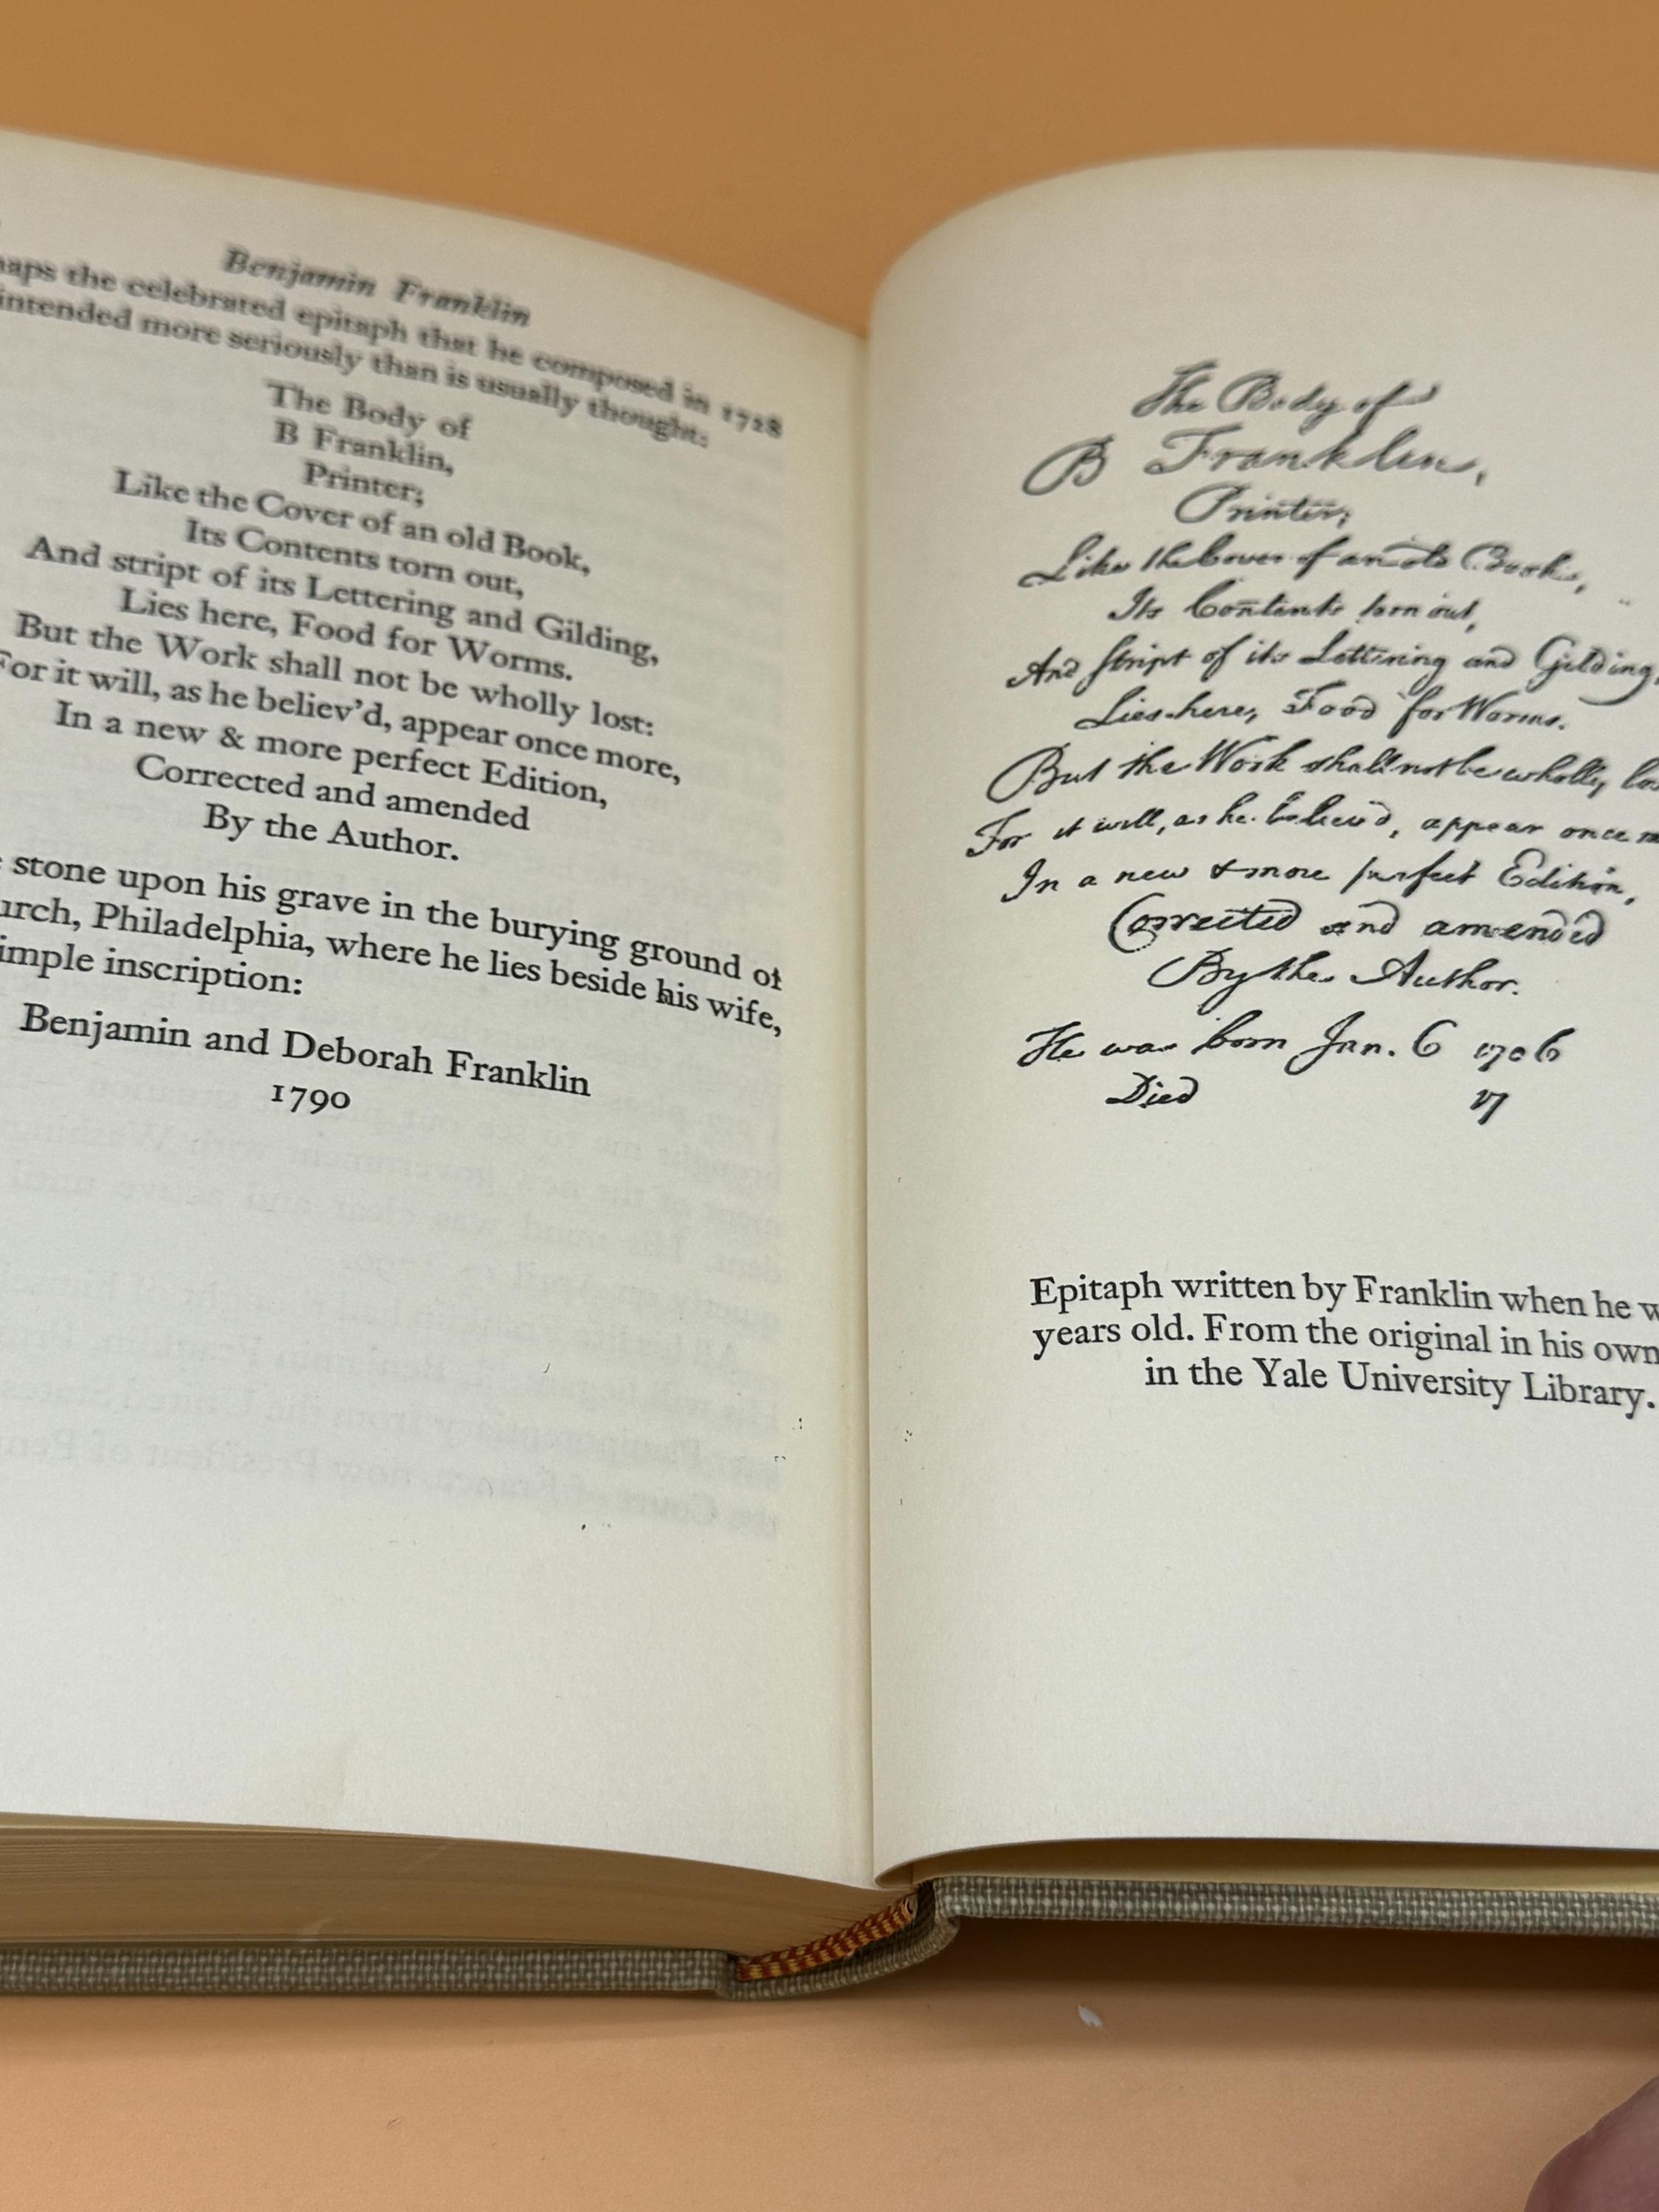 Benjamin Franklin
haps the celebrated epitaph that he composed in 1728
intended more seriously than is usually thought:
The Body of
B Franklin,
Printer;
Like the Cover of an old Book,
Its Contents torn out,
And stript of its Lettering and Gilding,
Lies here, Food for Worms.
But the Work shall not be wholly lost:
For it will, as he believ'd, appear once more,
In a new & more perfect Edition,
Corrected and amended
By the Author.
e stone upon his grave in the burying ground of
urch, Philadelphia, where he lies beside his wife,
imple inscription:
Benjamin and Deborah Franklin
1790
The Body of
B Franklin,
Printer;
Like the Cover of an old Book,
Its Contents torn out,
And stript of its Lettering and Gilding,
Lies here, Food for Worms.
But the Work shall not be wholly los
For it will, as he believ'd, appear once m
In a new & more perfect Edition,
Corrected and amended
By the Author.
He was born Jan. 6 1706
Died 17
Epitaph written by Franklin when he w
years old. From the original in his own
in the Yale University Library.